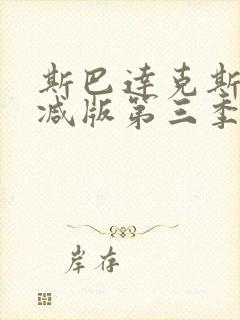 斯巴達克斯
减版第三季
岸存